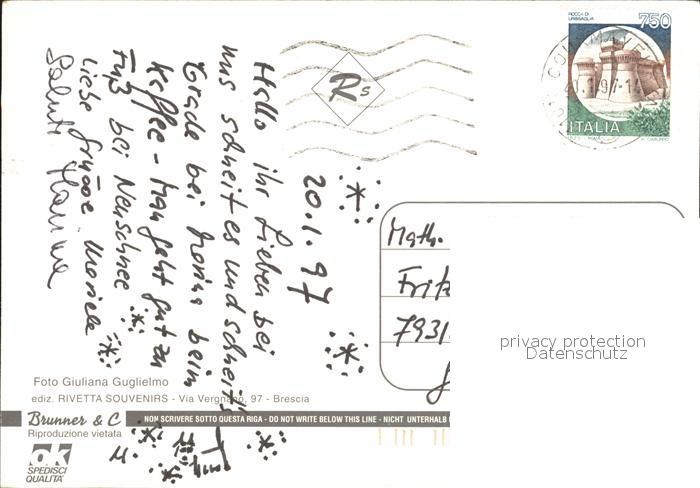 ROCCA DI
URBISAGLIA
750
ITALIA
Rs
20.1.97
Hallo ihr Lieben bei
uns schneit es und schneit's
Grade bei Marina beim
Kaffee - Man geht gut zu
Fuß bei Neuschnee
Liebe Grüsse
Saluti Marina
Math.
Fritz
7931
privacy protection
Datenschutz
Foto Giuliana Guglielmo
ediz. RIVETTA SOUVENIRS - Via Vergnano, 97 - Brescia
Brunner & C
NON SCRIVERE SOTTO QUESTA RIGA - DO NOT WRITE BELOW THIS LINE - NICHT UNTERHALB
Riproduzione vietata
ok
SPEDISCI
QUALITÀ